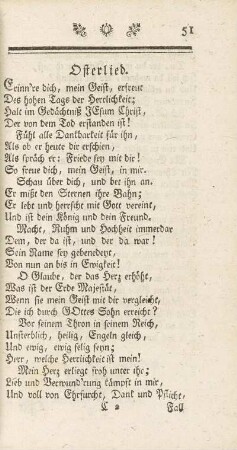 51
Osterlied.
Erinn're dich, mein Geist, erfreut
Des hohen Tags der Herrlichkeit;
Halt im Gedächtniß JEsum Christ,
Der von dem Tod erstanden ist!
Fühl alle Dankbarkeit für ihn,
Als ob er heute dir erschien,
Als spräch er: Friede sey mit dir!
So freue dich, mein Geist, in mir.
Schau über dich, und bet ihn an.
Er mißt den Sternen ihre Bahn;
Er lebt und herrscht mit Gott vereint,
Und ist dein König und dein Freund.
Macht, Ruhm und Hochheit immerdar
Dem, der da ist, und der da war!
Sein Name sey gebenedeyt,
Von nun an bis in Ewigkeit!
O Glaube, der das Herz erhöht,
Was ist der Erde Majestät,
Wenn sie mein Geist mit die vergleicht,
Die ich durch GOttes Sohn erreicht?
Vor seinem Thron in seinem Reich,
Unsterblich, heilig, Engeln gleich,
Und ewig, ewig selig seyn;
Herr, welche Herrlichkeit ist mein!
Mein Herz erliegt froh unter ihr;
Lieb und Verwund'rung kämpft in mir,
Und voll von Ehrfurcht, Dank und Pflicht,
C * Fall